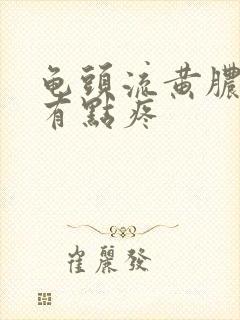 龟頭流黄膿
有點疼
崔麗發